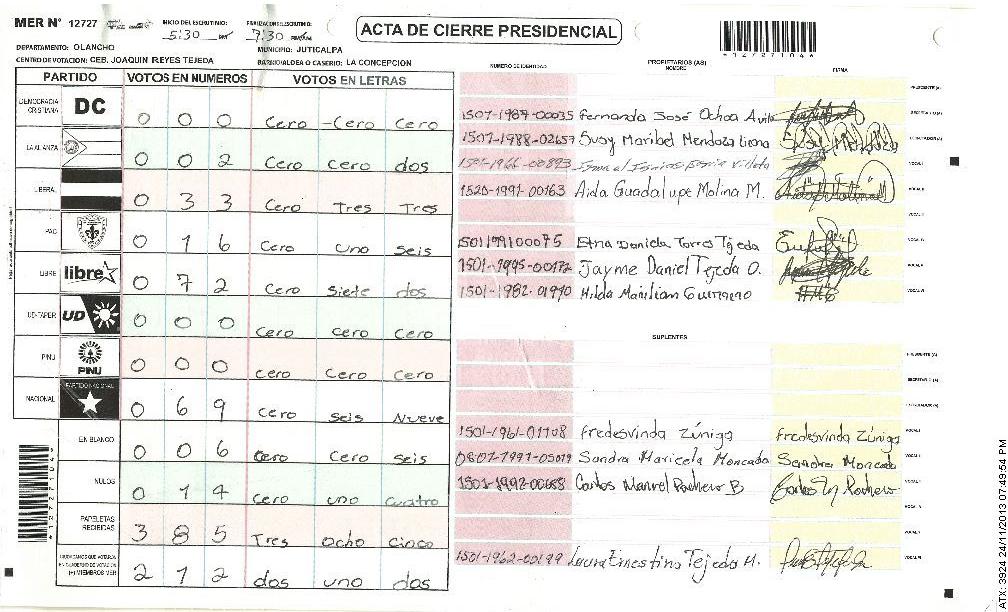 MER N° 12727
INICIO DEL ESCRUTINIO: 5:30 PM
7:30
ACTA DE CIERRE PRESIDENCIAL
*12727104*
DEPARTAMENTO: OLANCHO
MUNICIPIO: JUTICALPA
CENTRO DE VOTACION: CEB. JOAQUIN REYES TEJEDA
BARRIO/ALDEA O CASERIO: LA CONCEPCION
PARTIDO VOTOS EN NUMEROS VOTOS EN LETRAS
DEMOCRACIA CRISTIANA DC 0 0 0 Cero Cero Cero
LA ALIANZA 0 0 2 Cero Cero dos
LIBERAL 0 3 3 Cero Tres Tres
PAC 0 1 6 Cero uno seis
LIBRE libre 0 7 2 Cero Siete dos
UD-FAPER UD 0 0 0 Cero Cero Cero
PINU PINU 0 0 0 Cero Cero Cero
NACIONAL PARTIDO NACIONAL 0 6 9 Cero Seis Nueve
EN BLANCO 0 0 6 Cero Cero seis
NULOS 0 1 4 Cero uno cuatro
PAPELETAS RECIBIDAS 3 8 5 Tres Ocho Cinco
CIUDADANOS QUE VOTARON EN CUADERNO DE VOTACION (+) MIEMBROS MER 2 1 2 dos uno dos
NUMERO DE IDENTIDAD PROPIETARIOS (AS) NOMBRE FIRMA
PRESIDENTE (A)
1507-1987-00035 Fernanda José Ochoa Avila SECRETARIO (A)
1507-1988-02657 Susy Maribel Mendoza ESCRUTADOR (A)
1501-1966-00893 VOCAL I
1520-1991-00163 Aida Guadalupe Molina M. VOCAL II
VOCAL III
1501199100075 Etna Daniela Torres Tejeda VOCAL IV
1501-1995-00172 Jayme Daniel Tejeda O. VOCAL V
1501-1982-01970 Hilda Marilian Guerrero VOCAL VI
SUPLENTES
PRESIDENTE (A)
SECRETARIO (A)
ESCRUTADOR (A)
1501-1961-01108 Fredesvinda Zúniga Fredesvinda Zúniga VOCAL I
0807-1991-05019 Sandra Maricela Moncada Sandra Moncada VOCAL II
1501-1992-00688 Carlos Manuel Pacheco B Carlos M Pacheco
1501-1962-00199 Laura Ernestina Tejeda M. VOCAL VI
*12727104*
ATX: 3924 24/11/2013 07:49:54 PM